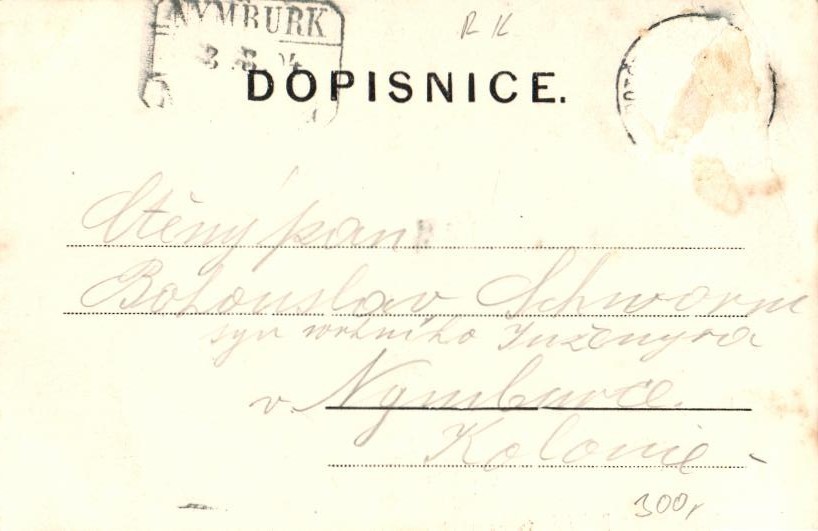 NYMBURK
R K
3 04
DOPISNICE.
Ctěný pan
Bohouslav Schworm
syn vrchního Inženyra
v Nymburce.
Kolonie
300,